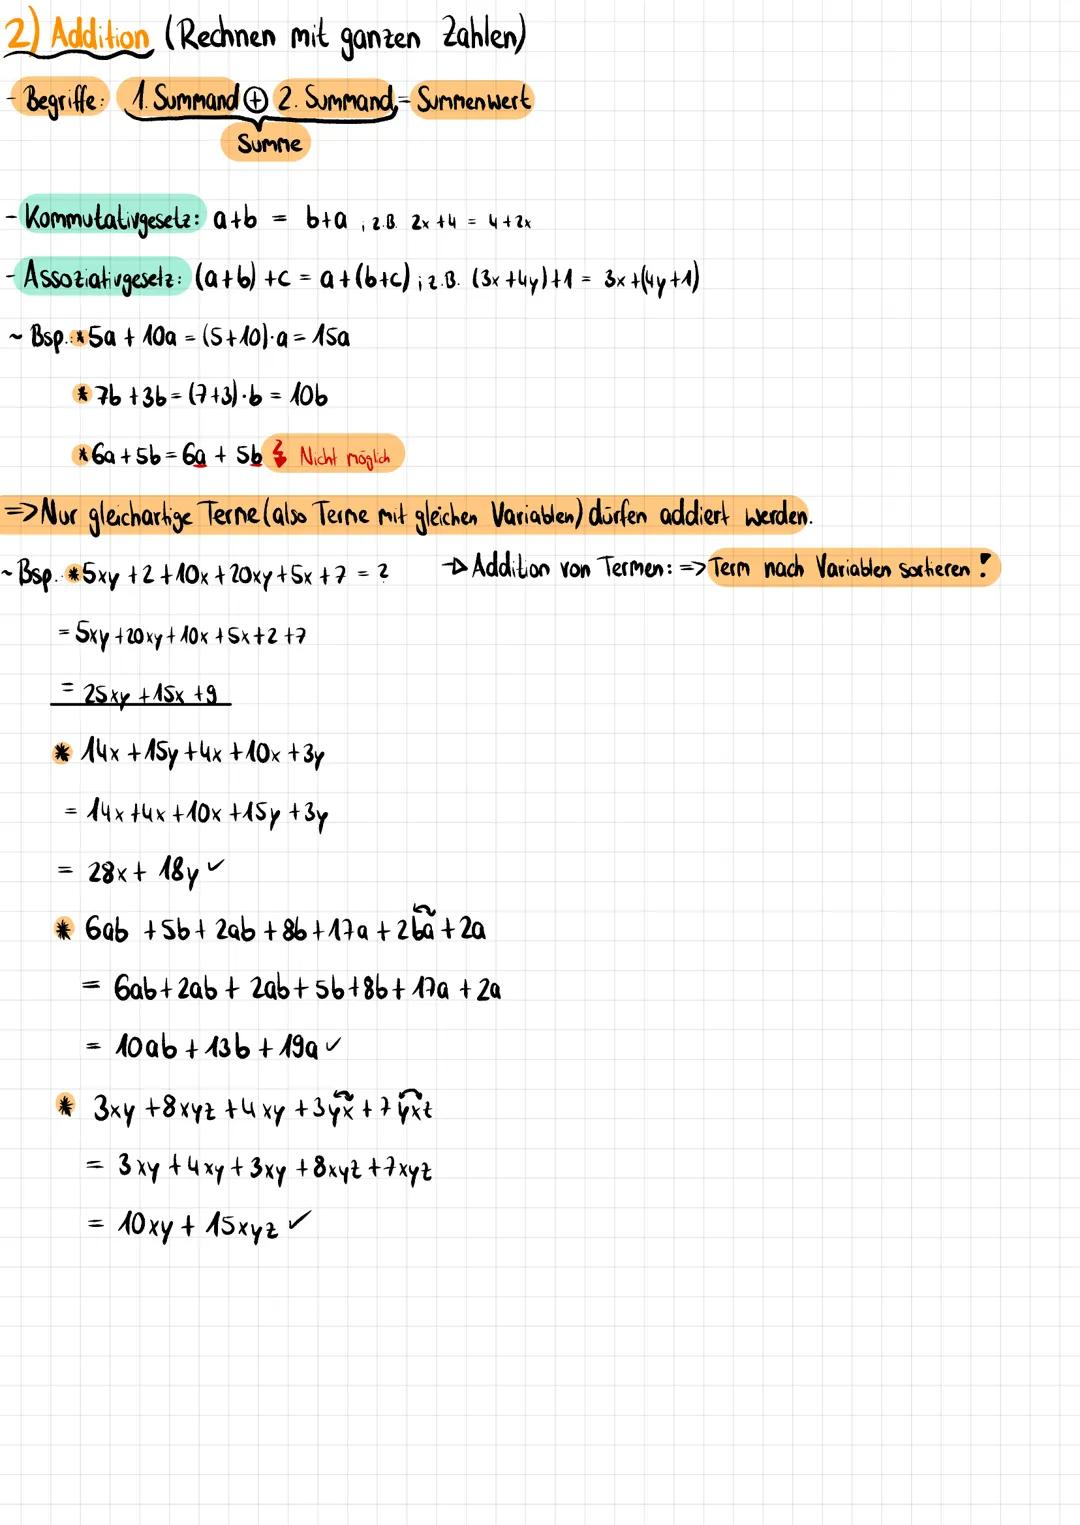 2) Addition (Rechnen mit ganzen Zahlen)
- Begriffe: 1. Summand + 2. Summand = Summenwert
Summe
- Kommutativgesetz: a+b = b+a ; z.B. 2x +4 = 4+2x
- Assoziativgesetz: (a+b) +c = a+(b+c) ; z.B. (3x +4y)+1 = 3x +(4y+1)
~ Bsp.: * 5a + 10a = (5+10)·a = 15a
* 7b +3b = (7+3)·b = 10b
* 6a +5b = 6a + 5b ↯ Nicht möglich
=> Nur gleichartige Terme (also Terme mit gleichen Variablen) dürfen addiert werden.
~ Bsp. * 5xy +2 +10x +20xy +5x +7 = ? -> Addition von Termen: => Term nach Variablen sortieren !
= 5xy +20xy + 10x +5x +2 +7
= 25xy +15x +9
* 14x +15y +4x +10x +3y
= 14x +4x +10x +15y +3y
= 28x + 18y ✓
* 6ab +5b + 2ab +8b +17a + 2ba + 2a
= 6ab + 2ab + 2ab + 5b +8b + 17a + 2a
= 10ab + 13b + 19a ✓
* 3xy +8xyz +4xy +3yx +7yxz
= 3xy +4xy + 3xy +8xyz +7xyz
= 10xy + 15xyz ✓